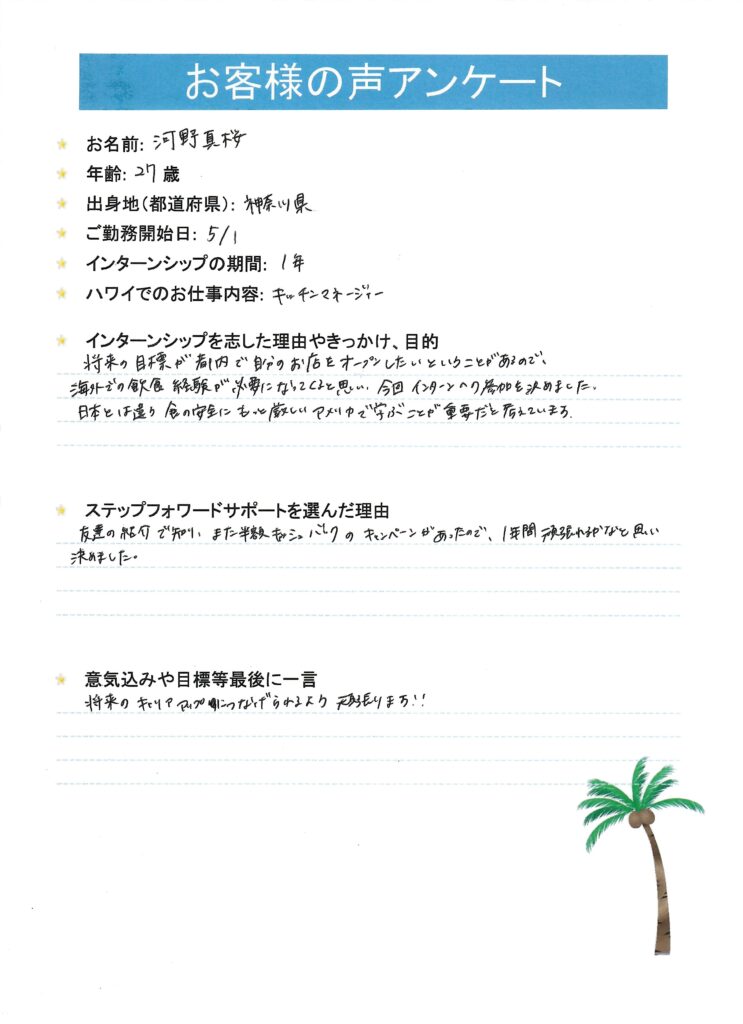 お客様の声アンケート
お名前: 河野真桜
年齢: 27 歳
出身地(都道府県): 神奈川県
ご勤務開始日: 5/1
インターンシップの期間: 1年
ハワイでのお仕事内容: キッチンマネージャー
インターンシップを志した理由やきっかけ、目的
将来の目標が都内で自分のお店をオープンしたいということがあるので、
海外での飲食経験が必要になってくると思い、今回インターンへの参加を決めました。
日本とは違い食の安全にもっと厳しいアメリカで学ぶことが重要だと考えています。
ステップフォワードサポートを選んだ理由
友達の紹介で知り、また半額キャッシュバックのキャンペーンがあったので、1年間頑張れるかなと思い
決めました。
意気込みや目標等最後に一言
将来のキャリアアップにつなげられるよう頑張ります!!